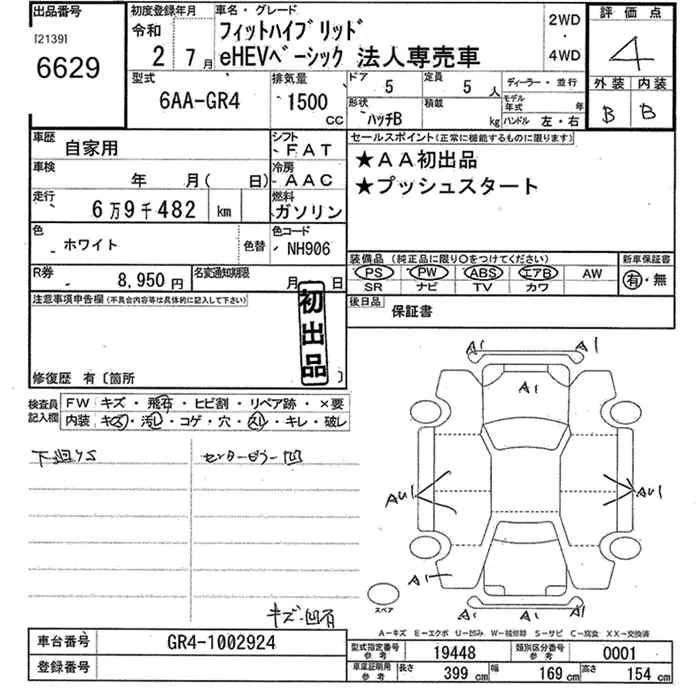 出品番号
[2139]
6629
初度登録年月
令和
2年 7月
車名・グレード
フィットハイブリッド
eHEVベーシック 法人専売車
2WD
・
4WD
評価点
4
外装 内装
B B
型式
6AA-GR4
排気量
1500
CC
ドア
5
定員
5人
形状
ハッチB
積載
kg
ディーラー・並行
モデル年式 年
ハンドル 左・右
車歴
自家用
シフト
FAT
車検
年 月( 日)
冷房
AAC
走行
6万9千482 km
燃料
ガソリン
色
ホワイト
色替
色コード
NH906
R券
8,950円
名変通知期限
月 日
セールスポイント(正常に機能するものに限ります)
★AA初出品
★プッシュスタート
装備品(純正品に限り○をつけてください)
PS PW ABS エアB AW
SR ナビ TV カワ
新車保証書
有・無
後日品
保証書
注意事項申告欄(不具合内容等は具体的に記入して下さい)
初出品
修復歴 有〔箇所
検査員記入欄
FW キズ・飛石・ヒビ割・リペア跡・×要
内装 キズ・汚レ・コゲ・穴・スレ・キレ・破レ
下廻りS
センターピラー凹
キズ・凹有
A1 A1
A1
AU1 AU1
A1
A1
スペア
A-キズ E-エクボ U-凹み W-補修跡 S-サビ C-腐食 XX-交換済
車台番号
GR4-1002924
登録番号
型式指定番号
参考
19448
類別区分番号
参考
0001
車庫証明用
参考
長さ
399cm
幅
169cm
高さ
154cm